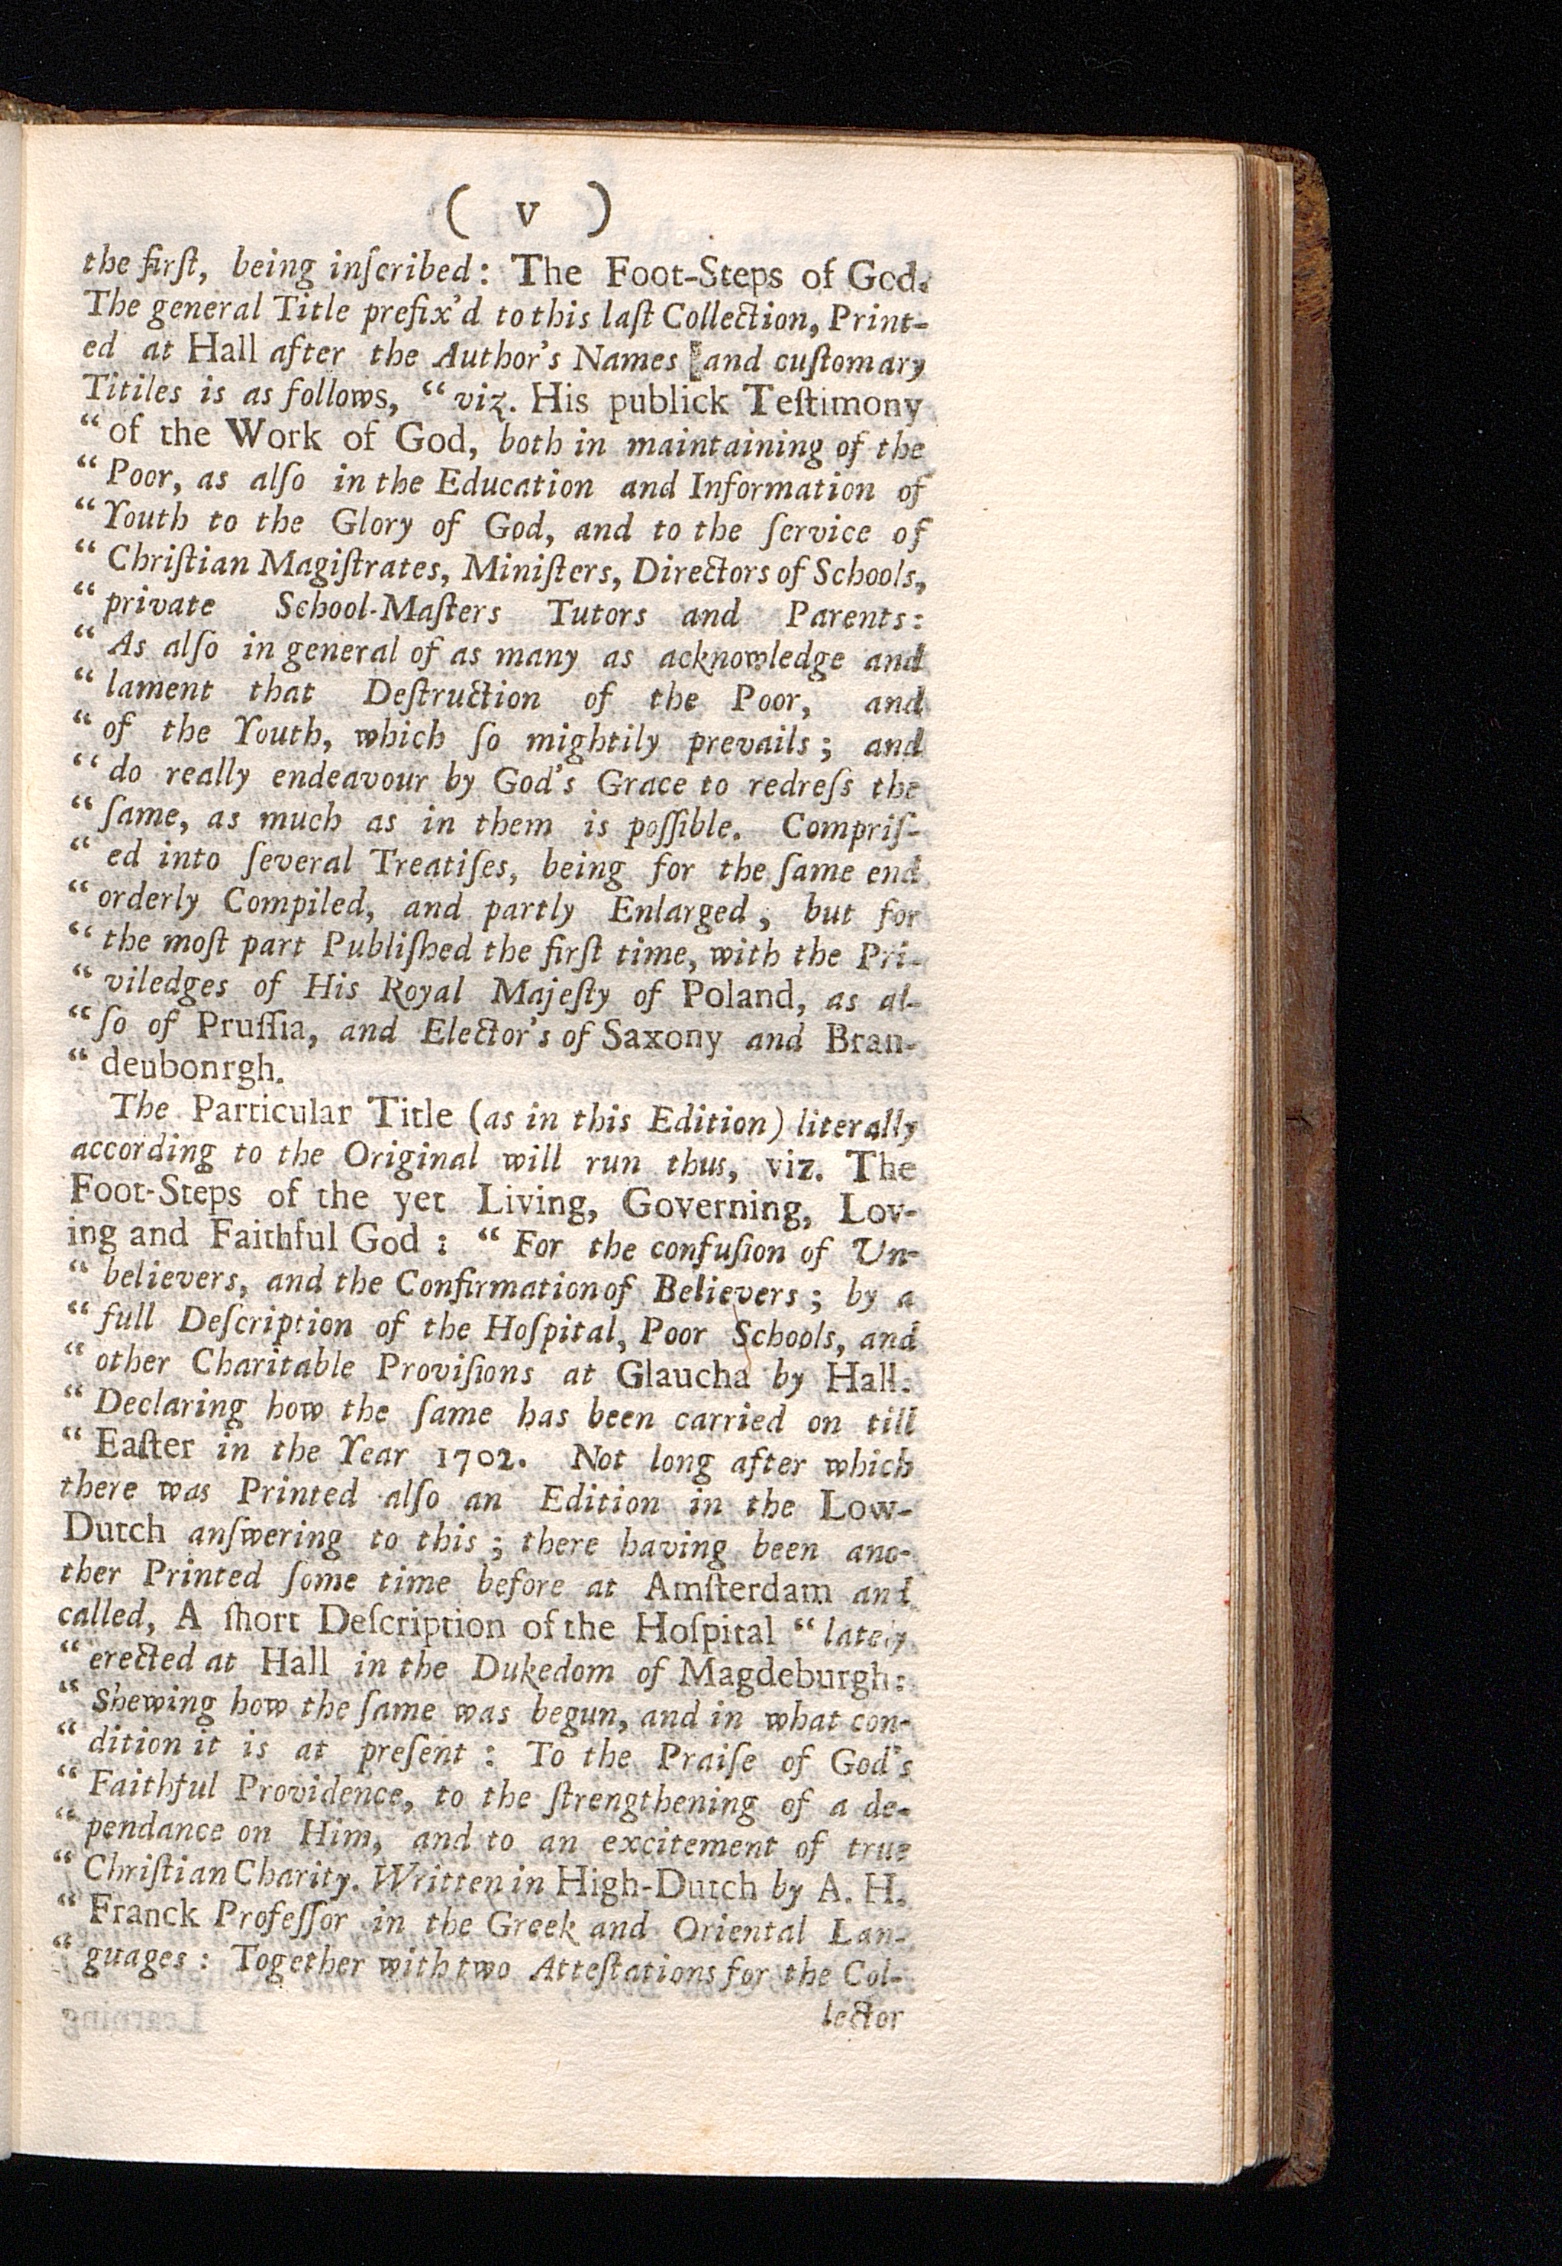 ( v )
the firſt, being inſcribed: The Foot-Steps of God.
The general Title prefix'd to this laſt Collection, Print-
ed at Hall after the Author's Names [and cuſtomary
Titiles is as follows, “ viz. His publick Teſtimony
“ of the Work of God, both in maintaining of the
“ Poor, as alſo in the Education and Information of
“ Youth to the Glory of God, and to the ſervice of
“ Chriſtian Magiſtrates, Miniſters, Directors of Schools,
“ private School-Maſters Tutors and Parents:
“ As alſo in general of as many as acknowledge and
“ lament that Deſtruction of the Poor, and
“ of the Youth, which ſo mightily prevails; and
“ do really endeavour by God's Grace to redreſs the
“ ſame, as much as in them is poſſible. Compriſ-
“ ed into ſeveral Treatiſes, being for the ſame end
“ orderly Compiled, and partly Enlarged, but for
“ the moſt part Publiſhed the firſt time, with the Pri-
“ viledges of His Royal Majeſty of Poland, as al-
“ ſo of Pruſſia, and Elector's of Saxony and Bran-
“ deubonrgh.
The Particular Title (as in this Edition) literally
according to the Original will run thus, viz. The
Foot-Steps of the yet Living, Governing, Lov-
ing and Faithful God: “ For the confuſion of Un-
“ believers, and the Confirmation of Believers; by a
“ full Deſcription of the Hoſpital, Poor Schools, and
“ other Charitable Proviſions at Glaucha by Hall.
“ Declaring how the ſame has been carried on till
“ Eaſter in the Year 1702. Not long after which
there was Printed alſo an Edition in the Low-
Dutch anſwering to this; there having been ano-
ther Printed ſome time before at Amſterdam and
called, A ſhort Deſcription of the Hoſpital “ lately
“ erected at Hall in the Dukedom of Magdeburgh:
“ Shewing how the ſame was begun, and in what con-
“ dition it is at preſent: To the Praiſe of God's
“ Faithful Providence, to the ſtrengthening of a de-
“ pendance on Him, and to an excitement of true
“ Chriſtian Charity. Written in High-Dutch by A. H.
“ Franck Profeſſor in the Greek and Oriental Lan-
“ guages: Together with two Atteſtations for the Col-
lector